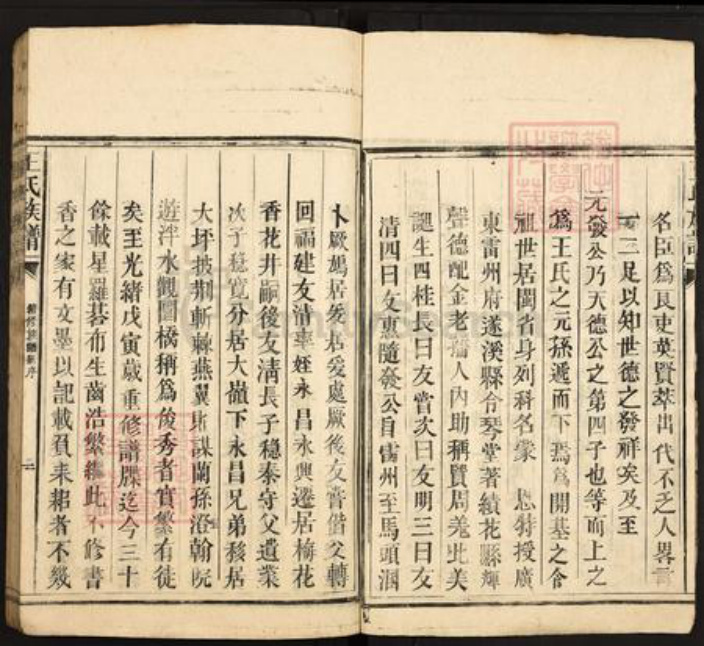 名臣為良吏英賢萃出代不乏人畧言
一二足以知世德之發祥矣及至
元發公乃天德公之第四子也等而上之
為王氏之元孫遞而下焉為開基之
祖世居閩省身列科名蒙 恩特授廣
東雷州府遂溪縣令琴堂著績花縣輝
聲德配金老孺人內助稱賢周羗比美
誕生四桂長曰友嘗次曰友明三曰友
清四曰友惠隨發公自雷州至馬頭
卜厥鳩居爰居爰處厥後友嘗偕父轉
回福建友清率姪永昌永興遷居梅花
香花井嗣後友清長子穩泰守父遺業
次子穩寬分居大嶺下永昌兄弟移居
大坪披荆斬棘燕翼貽謀蘭孫澄翰院
遊泮水觀圜橋稱為俊秀者實繁有徒
矣至光緒戊寅歲重修譜牒迄今三十
餘載星羅碁布生齒浩繁繼此不修書
香之家有文墨以記載負耒耜者不幾
王氏族譜
序
二